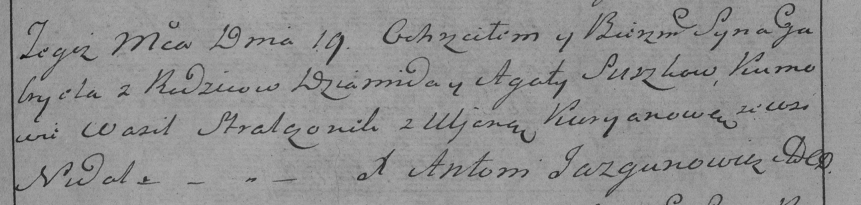 Tegoż Mca Dnia 19. Ochrzciłem y Bierzm Syna Ga
bryela z Rodzicow Dziamida y Agaty Suszkow, Kumo
wie Wasil Stralczonik z Uljaną Kuryanową ze wsi
Nidal - - " - X Antoni Jazgunowicz